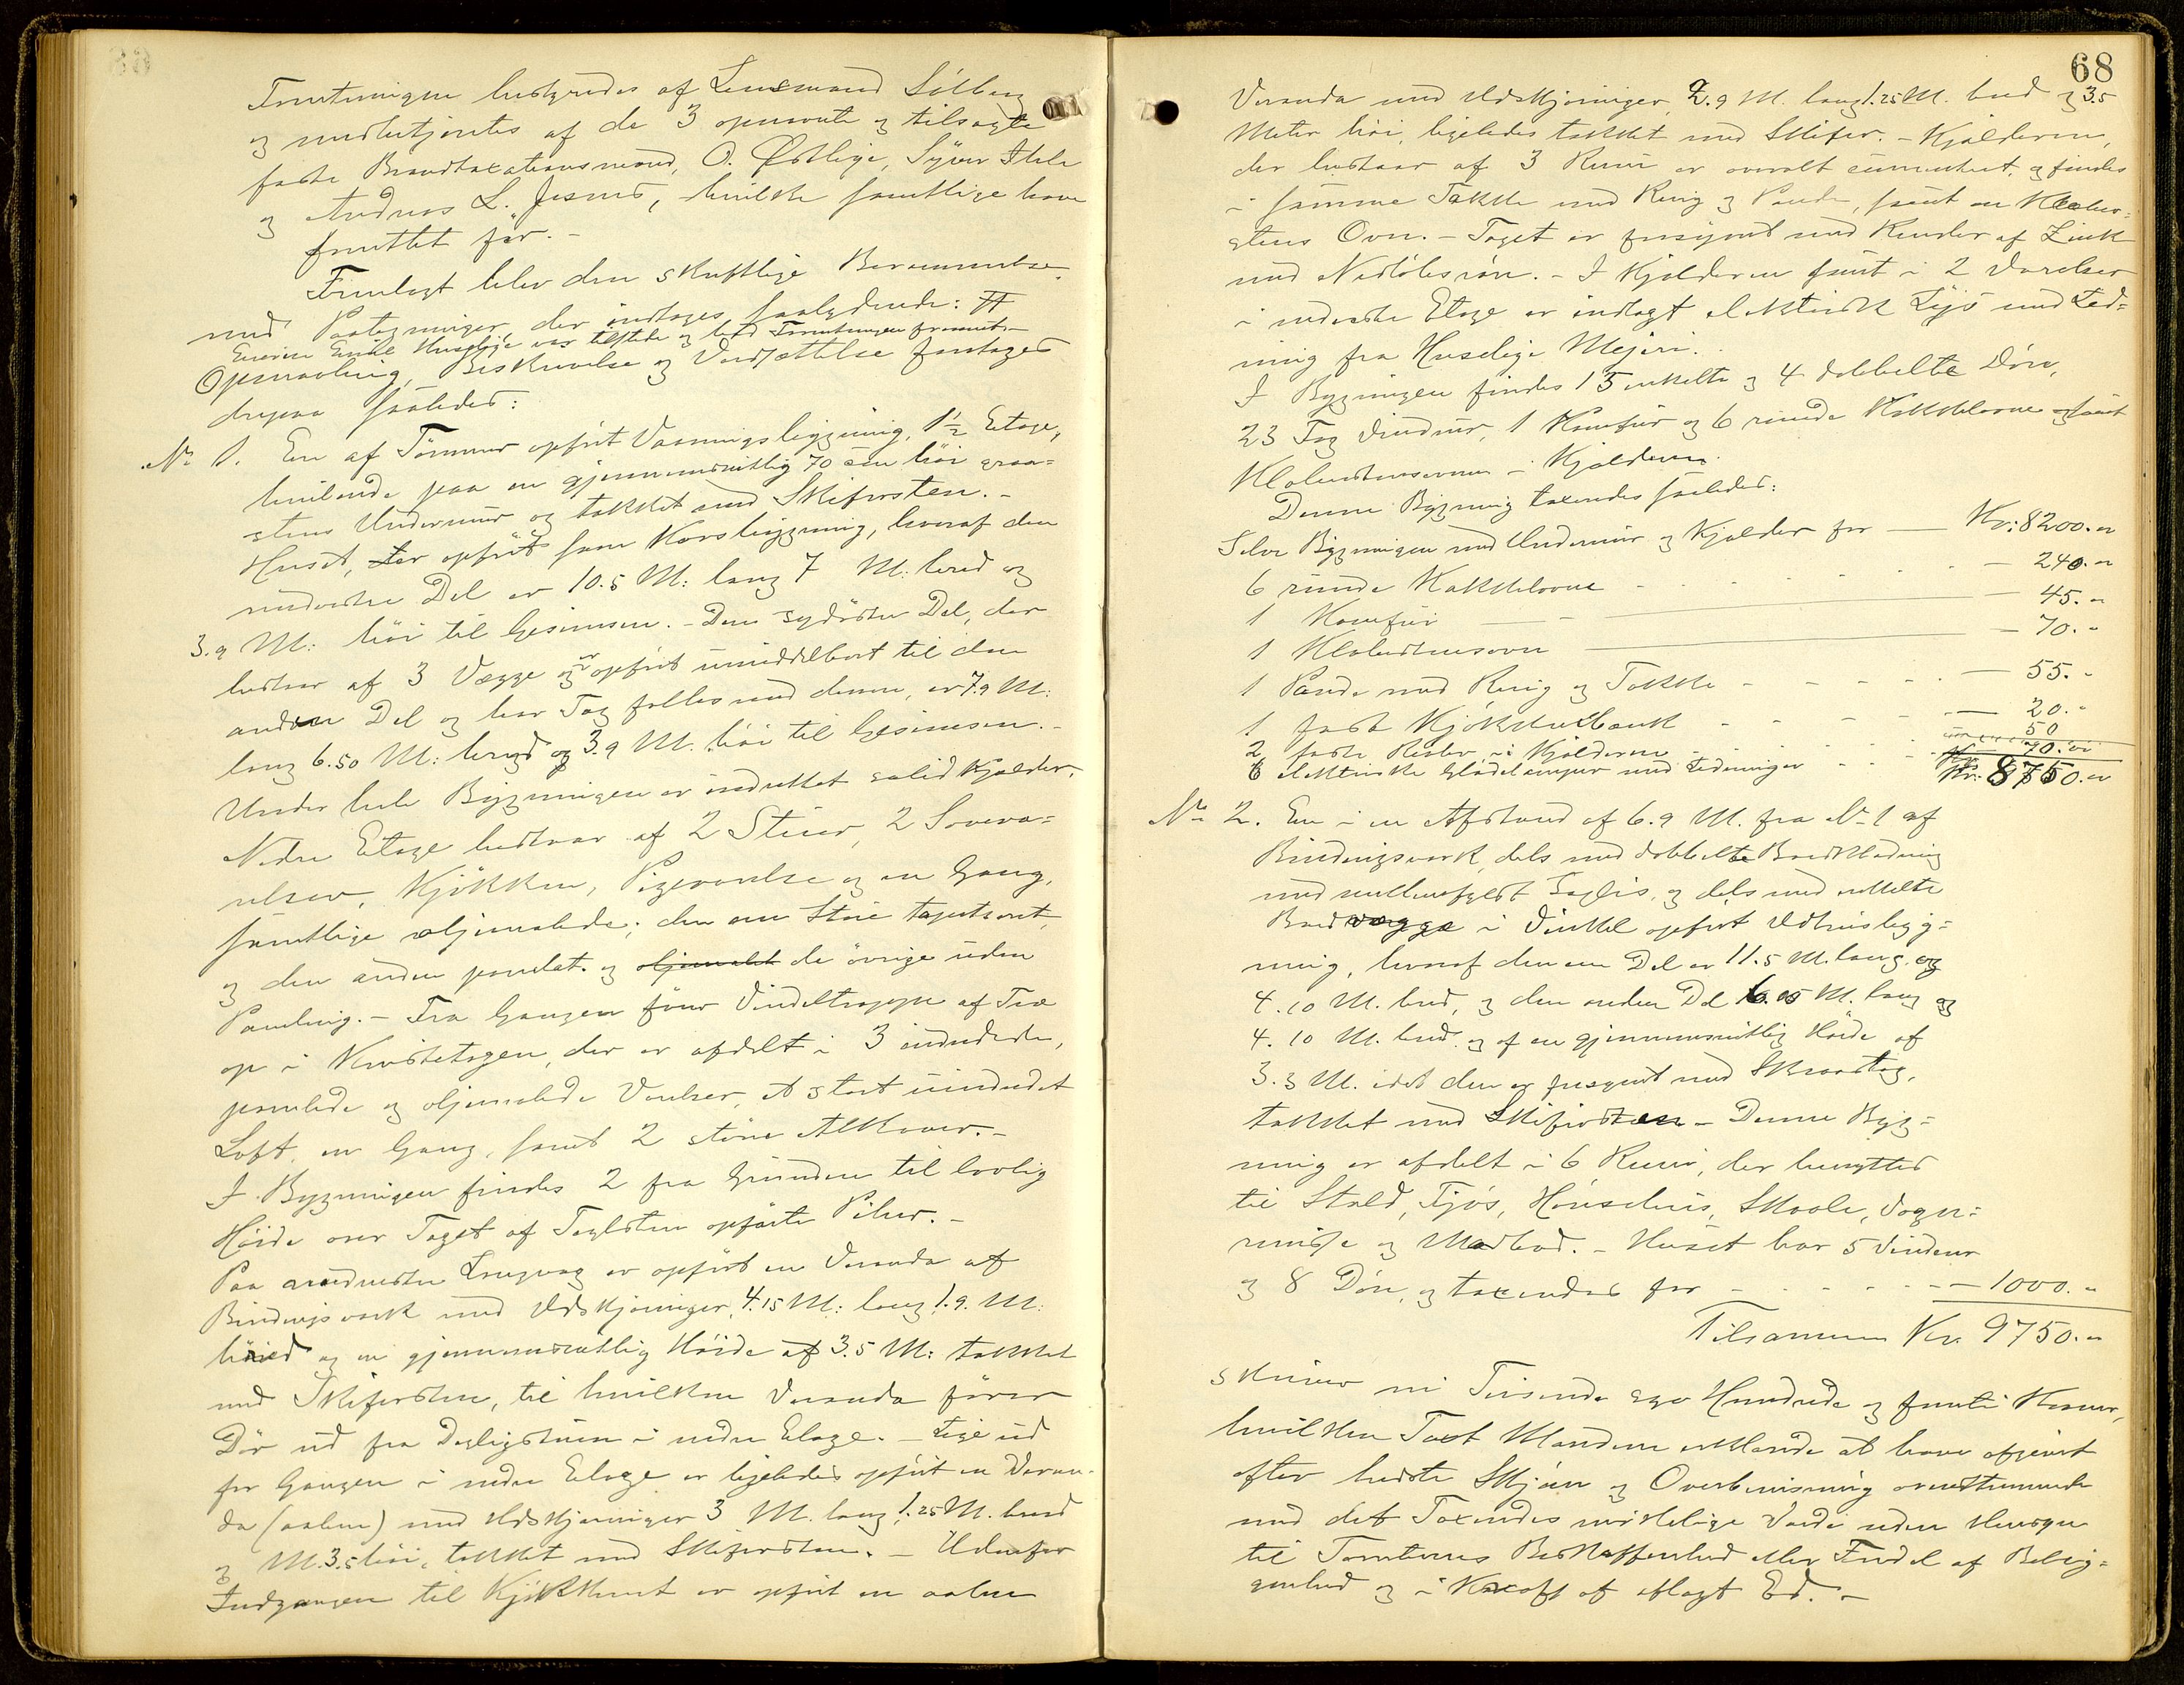 Forretningen bestyredes af Lensmand Sölberg
og medbetjentes af de 3 opnævnte og tilsagte
faste Brandtaxationsmænd, O. Østlige, Syver Stele
og Andreas L. Jesnes, hvilke samtlige have
fremtlet før.-
Fremlagt blev den skriftlige Berammelse
med Paategninger, der indtages saalydende: #
Eieren Emil Huseby var tilstede og lod Forretningen fremme.-
Opmaaling, Beskrivelse og Værdsættelse foretoges
derpaa saaledes:
No 1. En af Tömmer opfört Vaaningsbygning, 1½ Etage,
hvilende paa en gjennemsnitlig 70 cm höi graa-
stens Undermur og tækket med Skifersten.-
Huset, der opfört som Korsbygning, hvoraf den
nordvestre Del er 10.5 M: lang 7 M: bred og
3.9 M: höi til Gesimsen.- Den sydöstre Del, der
bestaar af 3 Vægge og er opfört umiddelbart til den
anden Del og har Tag fælles med denne, er 7.9 M:
lang 6.50 M: bred og 3.9 M. höi til Gesimsen.-
Under hele Bygningen er indrettet solid Kjælder.
Nedre Etage bestaar af 2 Stuer, 2 Soveværelser
elser, Kjökken, Pigeværelse og en Gang,
samtlige oljemalede; den ene Stue tapetseret
og den anden panelet og oljemalet de övrige uden
Panelning.- Fra Gangen förer Vindeltrappe af Træ
op i Kvistetagen, der er afdelt i 3 indredede,
panelede og oljemalede Værelser, et stort uindredet
Loft, en Gang, samt 2 större Alkover.-
I Bygningen findes 2 fra Grunden til lovlig
Höide over Taget af Teglsten opförte Piber.-
Paa nordvestre Langvæg er opfört en Veranda af
Bindingsverk med Udskjæringer, 4.15 M: lang 1.9. M:
bred og en gjennemsnitlig Höide af 3.5 M: tækket
med Skifersten, til hvilken Veranda förer
Dör ud fra Dagligstuen i nedre Etage.- Lige ud
for Gangen i nedre Etage er ligeledes opfört en Veran-
da (aaben) med Udskjæringer 3 M. lang 1.25 M. bred
og M. 3.5 höi, tækket med Skifersten.- Udenfor
Indgangen til Kjökkenet er opfört en aaben
68
Veranda med Udskjæringer, 2.9 M. lang 1.25 M. bred og 3.5
Meter höi, ligeledes tækket med Skifer.- Kjælderen,
der bestaar af 3 Rum er overalt cementeret, og findes
i samme Takke med Ring og Pande, samt en Kleber-
stens Ovn.- Taget er forsynet med Render af Zink
med Nedlöbsrör.- I Kjælderen samt i 2 Værelser
i nederste Etage er indlagt elektrisk Lys med Led-
ning fra Huseby Mejeri.
I Bygningen findes 15 enkelte og 4 dobbelte Döre,
23 Fag Vinduer, 1 Komfur og 6 runde Kakkelovne og samt
Klebestensovnen i Kjælderen.
Denne Bygning taxeredes saaledes:
Selve Bygningen med Undermur og Kjælder for — Kr: 8200. "
6 runde Kakkelovne - - - - - 240. "
1 Komfur — 45. "
1 Klebestensovn — 70. "
1 Pande med Ring og Takke - - - - 55. "
1 fast Kjökkenbænk - - - - 20. "
2 faste Reoler i Kjælderen - - - 50
6 elektriske Glödelamper med Ledninger - - - 70. "
Kr: 8750. "
No 2. En i en Afstand af 6.9 M. fra No 1 af
Bindingsverk, dels med dobbelte Bordklædning
med mellemfyldt Sagflis, og dels med enkelte
Bordvægge i Vinkel opfört Udhusbyg-
ning, hvoraf den ene Del er 11.5 M. lang og
4.10 M. bred, og den anden Del 6.05 M. lang og
4.10 M. bred og af en gjennemsnitlig Höide af
3.3 M. idet den er forsynet med Skraatag,
tækket med Skifersten - Denne Byg-
ning er afdelt i 6 Rum, der benyttes
til Stald, Fjös, Hönsehus, Skaale, Vogn-
remisse og Madbod.- Huset har 5 Vinduer
og 8 Döre, og taxeredes for - - - — 1000. "
Tilsammen Kr. 9750. "
skriver ni Tusende syv Hundrede og femti Kroner,
hvilken Taxt Mændene erklærede at have afgivet
efter bedste Skjön og Overbevisning overensstemmende
med det Taxeredes virkelige Værdi uden Hensyn
til Tomternes Beskaffenhed eller Fordel af Belig-
genhed og i Kraft af aflagt Ed.-